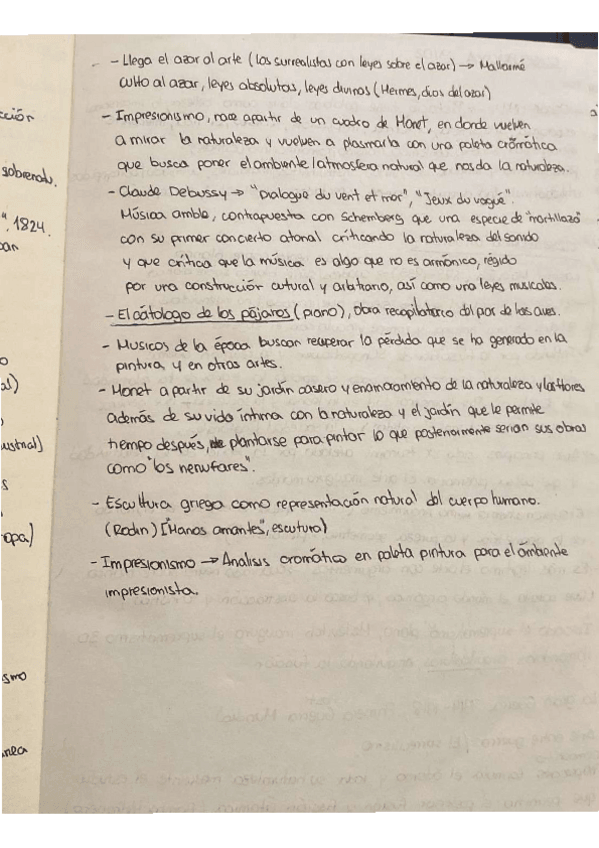 - Llega el azar al arte (los surrealistas con leyes sobre el azar) → Mallarmé
culto al azar, leyes absolutas, leyes divinas (Hermes, dios del azar)
- Impresionismo, nace apartir de un cuadro de Monet, en donde vuelven
a mirar la naturaleza y vuelven a plasmarla con una paleta cromática
que busca poner el ambiente/atmosfera natural que nos da la naturaleza.
- Claude Debussy → "Dialogue du vent et mer", "Jeux du vague".
Música amble, contrapuesta con Schemberg que una especie de "martillazo"
con su primer concierto atonal criticando la naturaleza del sonido
y que crítica que la música es algo que no es armónico, régido
por una construcción cultural y arbitrario, así como una leyes musicales.
- El cátologo de los pájaros (piano), obra recopilatorio del por de las aves.
- Musicos de la época buscan recuperar la pérdida que se ha generado en la
pintura, y en otras artes.
- Monet a partir de su jardín casero y enamoramiento de la naturaleza y las flores
además de su vida íntima con la naturaleza y el jardín que le permite
tiempo después, plantarse para pintar lo que posteriormente serian sus obras
como "los nenufares".
- Escultura griega como representación natural del cuerpo humano.
(Rodin) ["Manos amantes", escultura)
- Impresionismo → Analisis cromático en paleta pintura para el ámbiente
impresionista.
cción
sobrenatu.
". 1824.
pan
o
al)
ustrial)
s
opa)
smo
anea